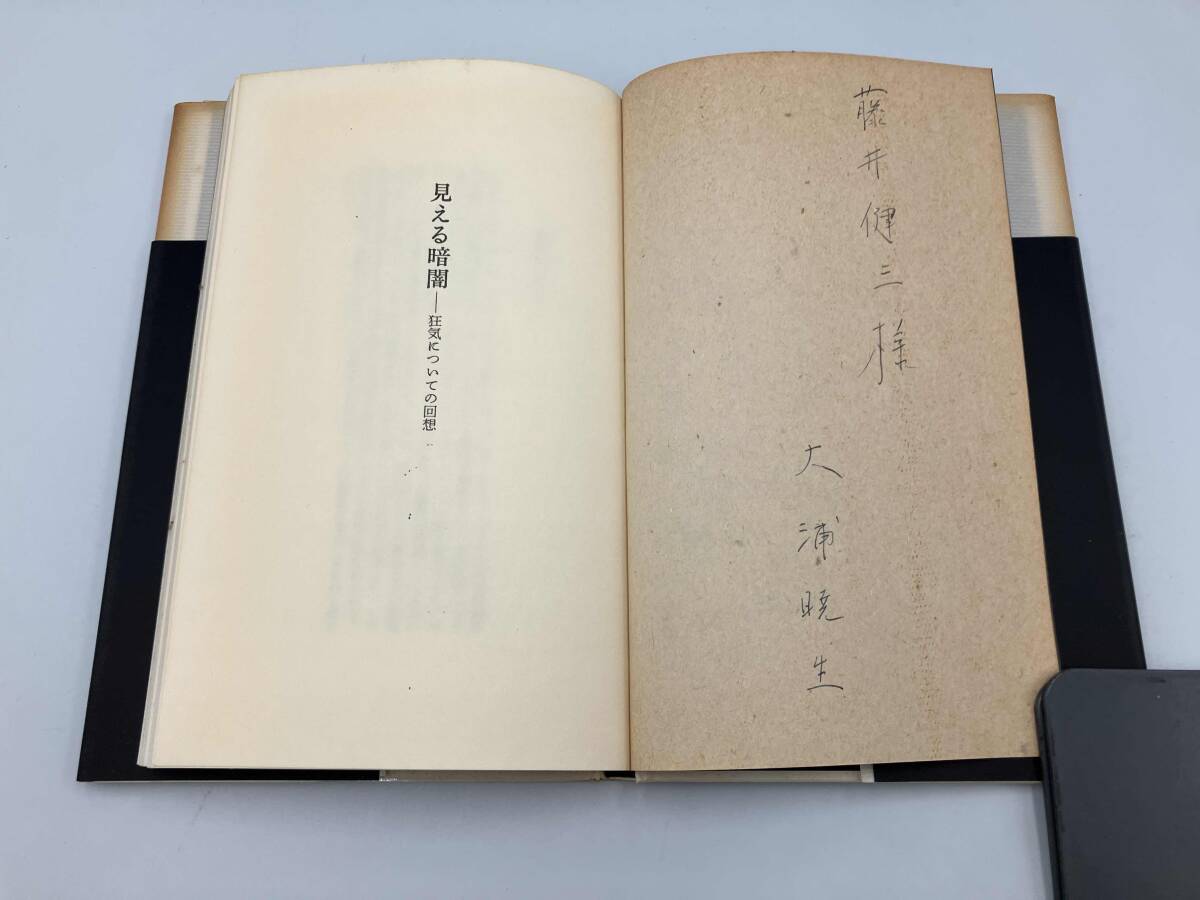 藤井健三様
大浦暁生
見える暗闇
―狂気についての回想